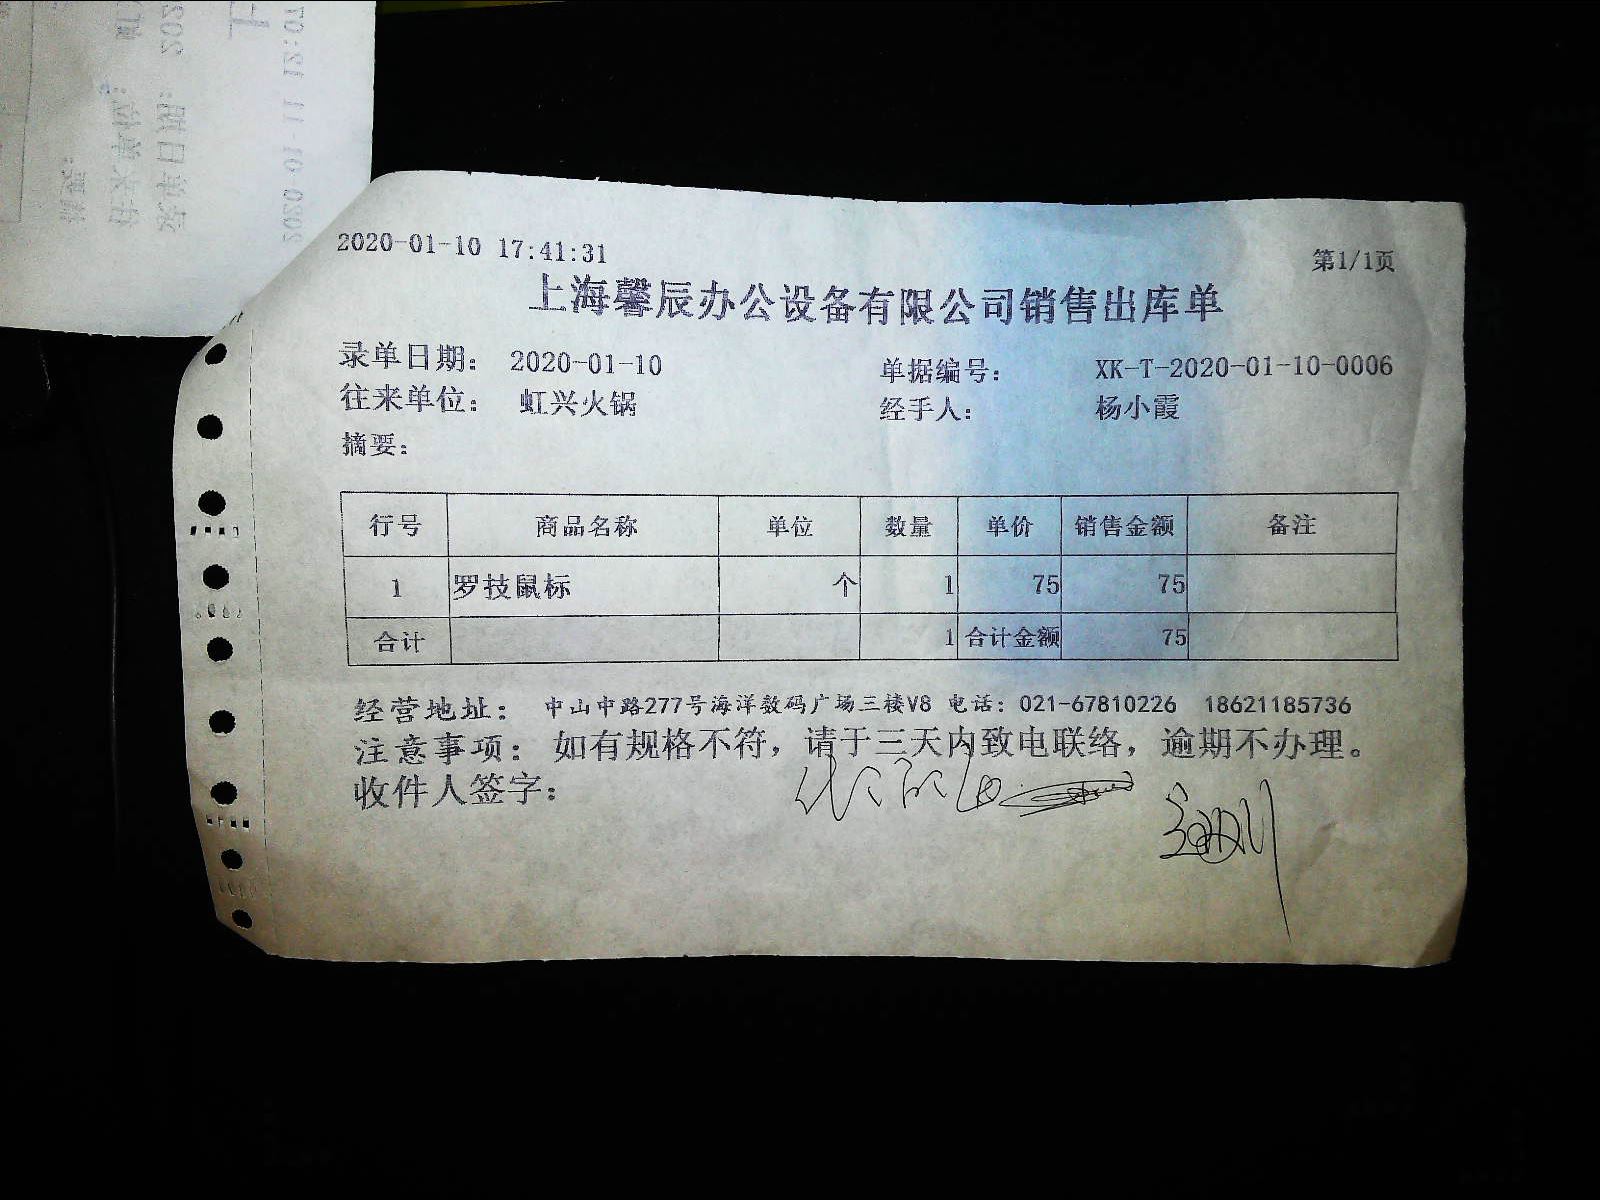 2020-01-10 17:41:31 第1/1页
上海馨辰办公设备有限公司销售出库单
录单日期： 2020-01-10 单据编号： XK-T-2020-01-10-0006
往来单位： 虹兴火锅 经手人： 杨小霞
摘要：
行号 商品名称 单位 数量 单价 销售金额 备注
1 罗技鼠标 个 1 75 75
合计 1 合计金额 75
经营地址： 中山中路277号海洋数码广场三楼V8 电话：021-67810226 18621185736
注意事项： 如有规格不符，请于三天内致电联络，逾期不办理。
收件人签字：
2020-01-11 12:07
录单日期：
往来单位：
摘要：